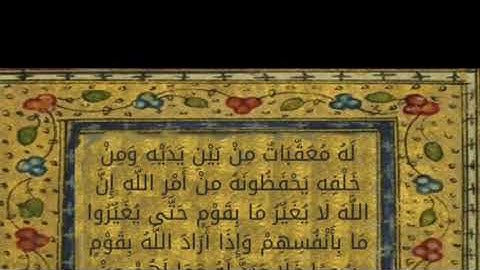 لَهُ مُعَقِّبَاتٌ مِنْ بَيْنِ يَدَيْهِ وَمِنْ
خَلْفِهِ يَحْفَظُونَهُ مِنْ أَمْرِ اللَّهِ إِنَّ
اللَّهَ لَا يُغَيِّرُ مَا بِقَوْمٍ حَتَّى يُغَيِّرُوا
مَا بِأَنْفُسِهِمْ وَإِذَا أَرَادَ اللَّهُ بِقَوْمٍ